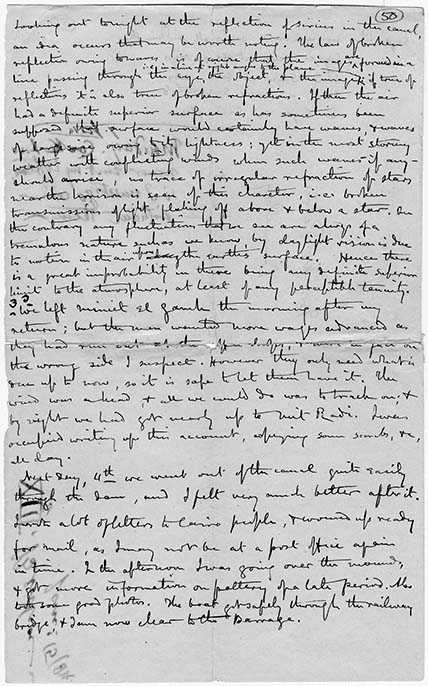 50
Looking out tonight at the reflection of sirius in the canal,
an idea occurs that may be worth noting. The law of broken
reflection owing to waves, is of course that the image is formed in a
line passing through the eye, the object, & the image; if true of
reflections it is also true of broken refractions. If then the air
had a definite superior surface as has sometimes been
supposed that surface would certainly have waves, & waves
of large size owing to its lightness; yet in the most stormy
weather with conflicting winds when such waves if any
should arise no trace of irregular refraction of stars
near the horizon is seen of this character, i.e. broken
transmissions of light flashing off above & below a star. On
the contrary any fluctuations that we see are always of a
tremulous nature such as we know, by daylight vision is due
to motion in the air near the earths surface. Hence there
is a great improbability in there being any definite superior
limit to the atmosphere, at least of any perceptible tenuity.
3
We left Miniet el Gamh the morning after my
return; but the men wanted more wages advanced as
they had run out at the
the wrong side I suspect. However they only need what is
due up to now, so it is safe to let them have it. The
wind was ahead & all we could do was to track on; &
by night we had got nearly up to Mit Radi. I was
occupied writing up this account, copying some scarabs, &c,
all day.
Next day, 4th we went out of the canal quite easily
through the dam, and I felt very much better after it.
I wrote a lot of letters to Cairo people, & wound up ready
for mail, as I may not be at a post office again
in time. In the afternoon I was going over the mounds,
& got more information on pottery of a late period. Also
took some good photos. The boat got safely through the railway
bridge & I am now clear to the Barrage.
XIII